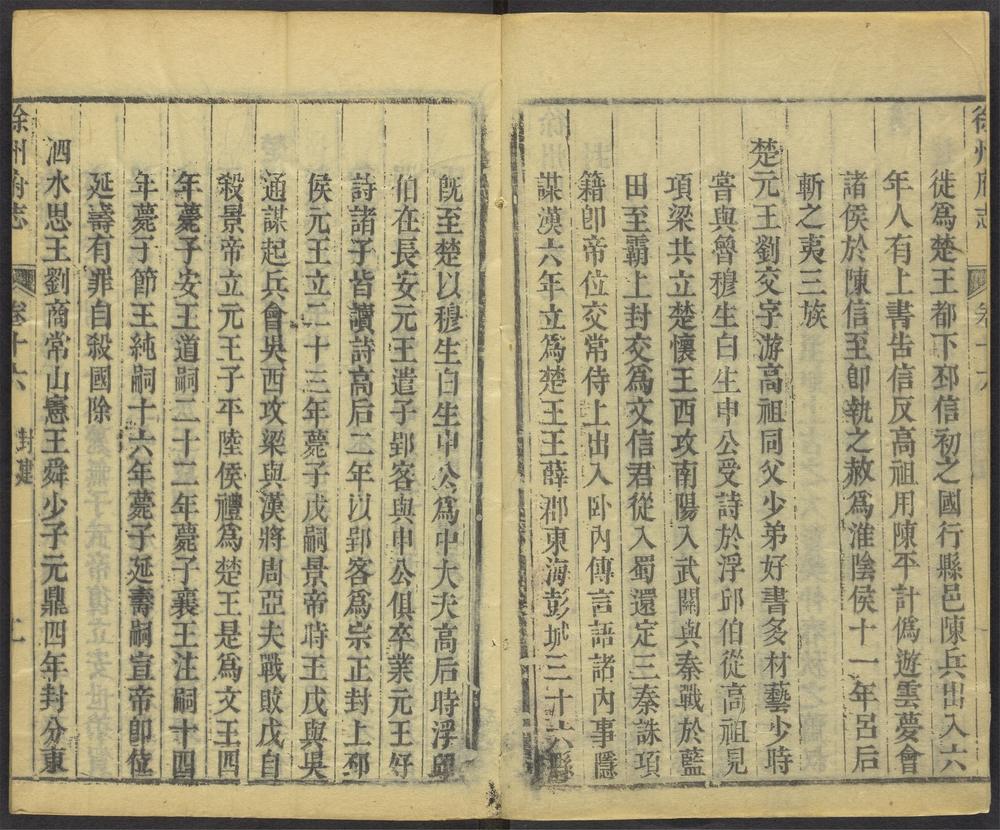 徐州府志
卷十六
徙爲楚王都下邳信初之國行縣邑陳兵出入六
年人有上書告信反高祖用陳平計僞遊雲夢會
諸侯於陳信至卽執之赦爲淮陰侯十一年呂后
斬之夷三族
楚元王劉交字游高祖同父少弟好書多材藝少時
嘗與魯穆生白生申公受詩於浮邱伯從高祖見
項梁共立楚懷王西攻南陽入武關與秦戰於藍
田至霸上封交爲文信君從入蜀還定三秦誅項
籍卽帝位交常侍上出入卧內傳言語諸內事隱
謀漢六年立爲楚王王薛郡東海彭城三十六縣
旣至楚以穆生白生申公爲中大夫高后時浮邱
伯在長安元王遣子郢客與申公俱卒業元王好
詩諸子皆讀詩高后二年以郢客爲宗正封上邳
侯元王立二十三年薨子戊嗣景帝時王戊與吳
通謀起兵會吳西攻梁與漢將周亞夫戰敗戊自
殺景帝立元王子平陸侯禮爲楚王是爲文王四
年薨子安王道嗣二十二年薨子襄王注嗣十四
年薨子節王純嗣十六年薨子延壽嗣宣帝卽位
延壽有罪自殺國除
泗水思王劉商常山憲王舜少子元鼎四年封分東
徐州府志
卷十六
封建
二